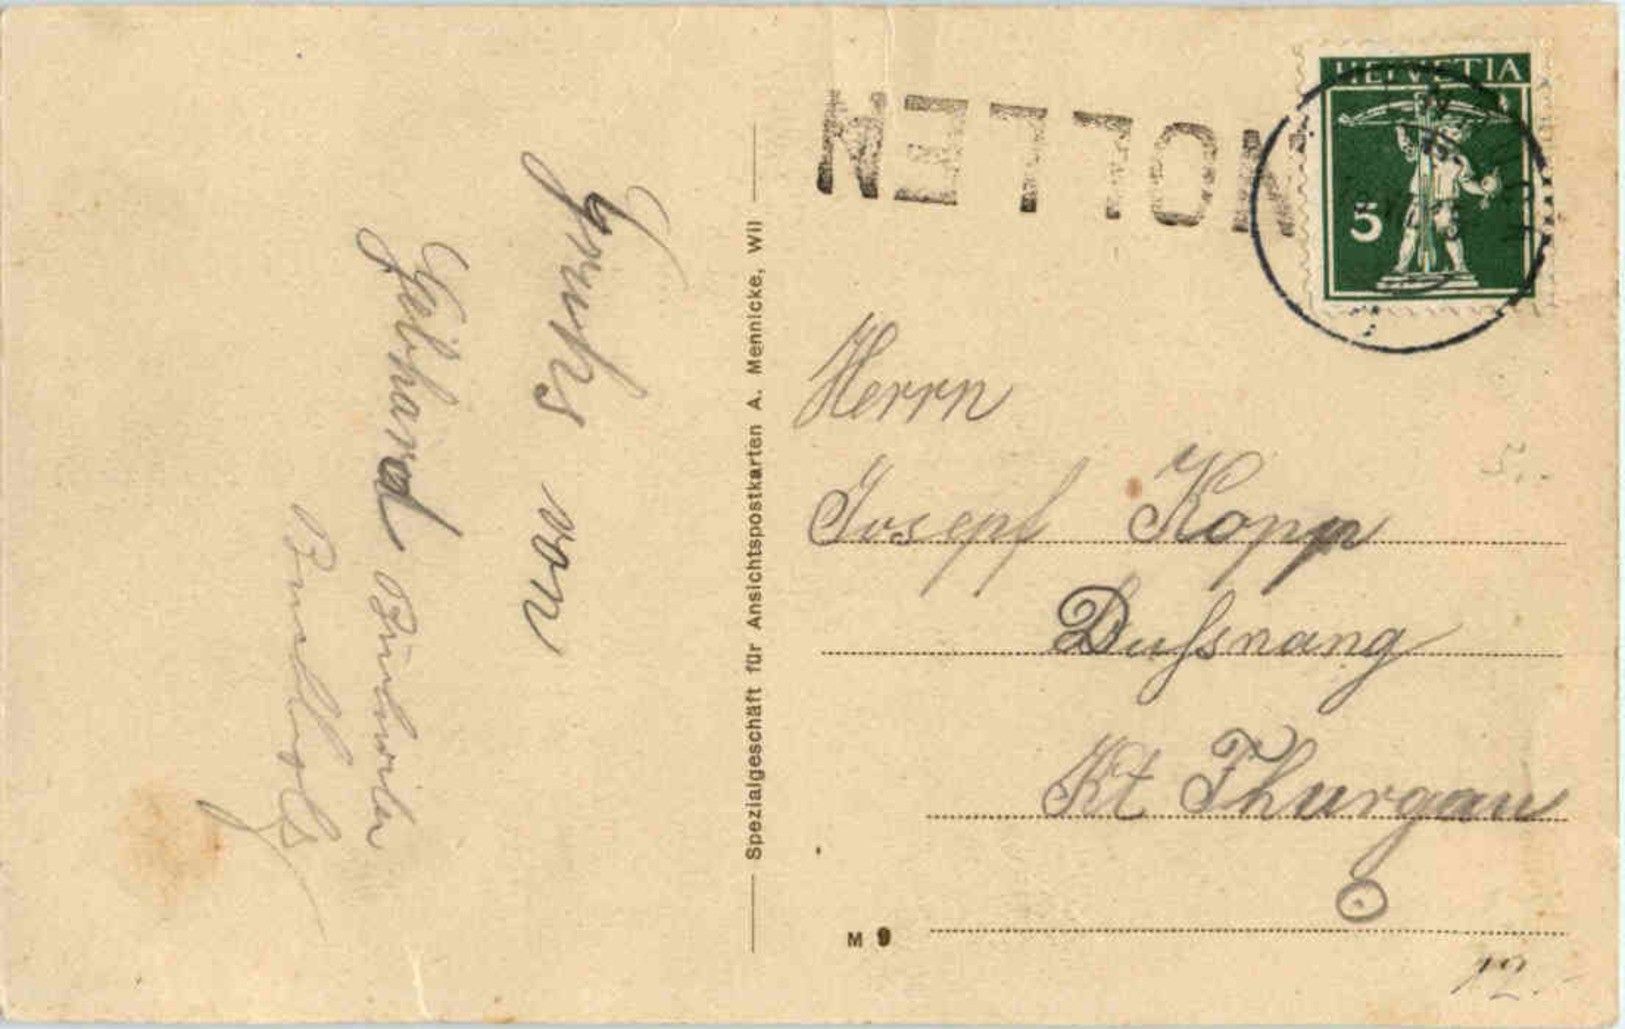 NOLLEN
HELVETIA
5
Gruſs von
Gebhard
Spezialgeschäft für Ansichtspostkarten A. Mennicke, Wil
Herrn
Josepf Kopp
Duſsnang
Kt Thurgau
M 9
12.-